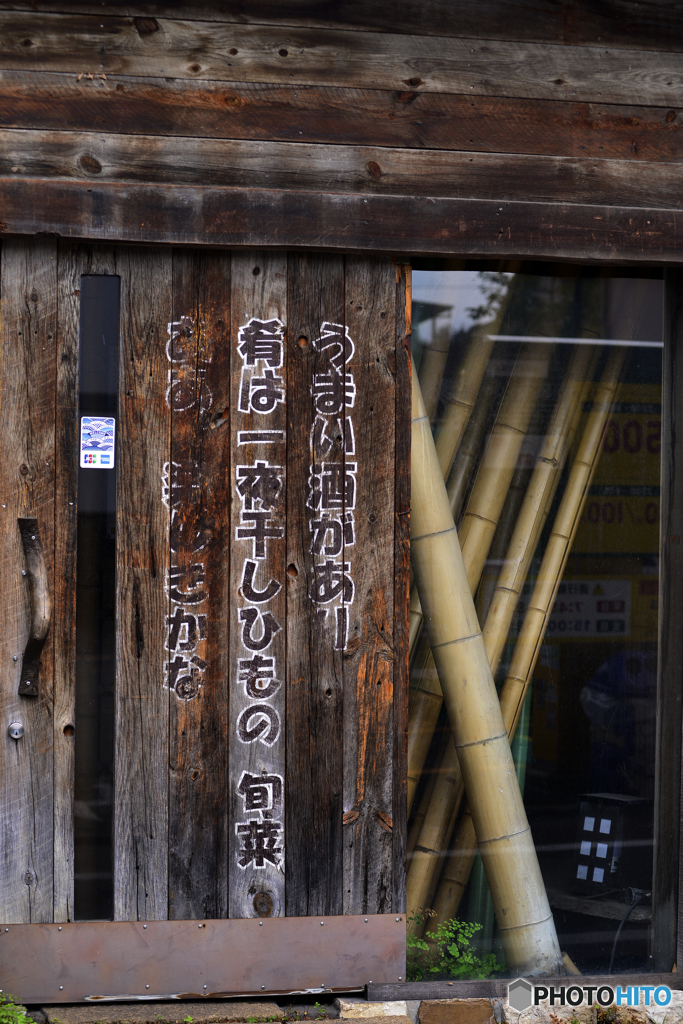 うまい酒があり
肴は一夜干しひもの 旬菜
さあ、楽しきかな
JCB
PHOTOHITO